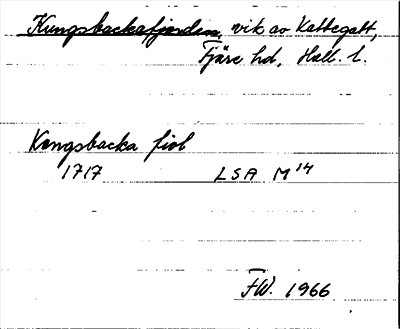 Kungsbackafjorden, vik av Kattegatt,
Fjäre hd, Hall. l.
Kongsbacka fiol
1717 LSA M 14
FW. 1966